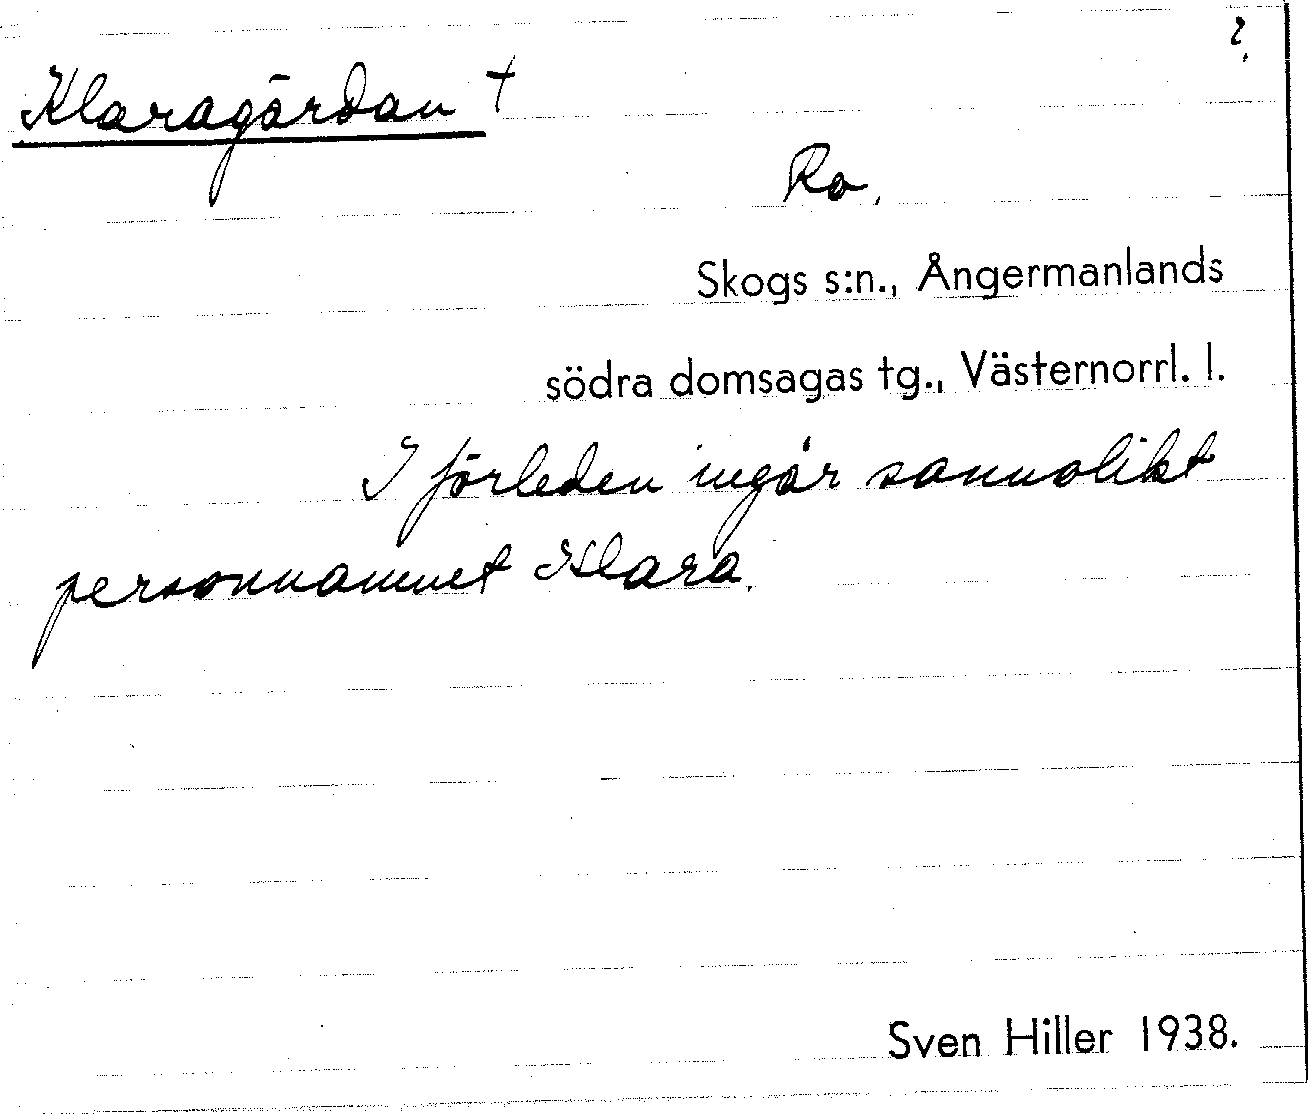 ?
Klaragärdan †
Ro.
Skogs s:n., Ångermanlands
södra domsagas tg., Västernorrl. l.
I förleden ingår sannolikt
personnamnet Klara.
Sven Hiller 1938.